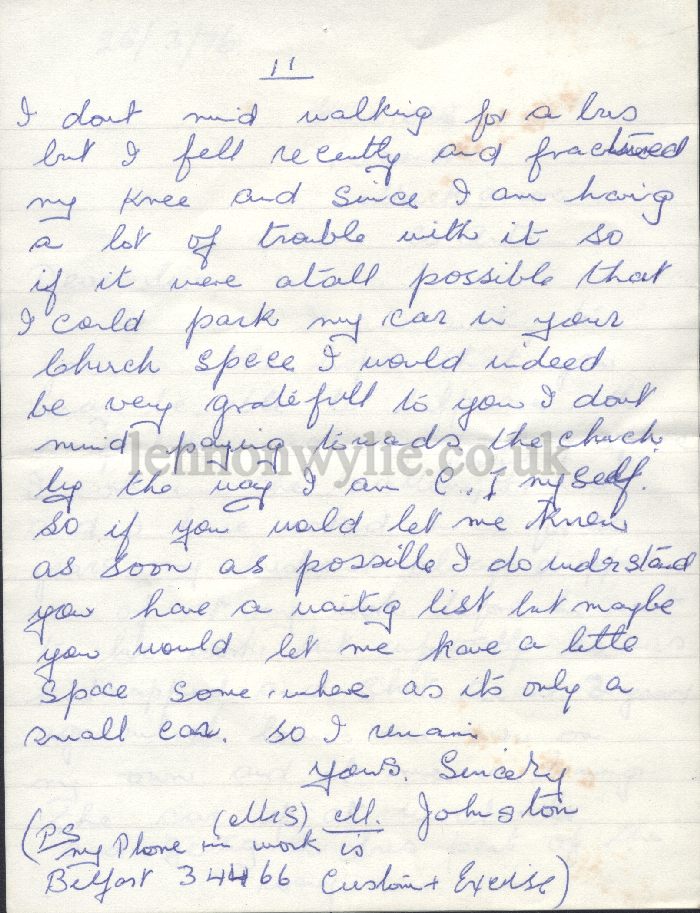 11
I dont mind walking for a bus
but I fell recently and fractured
my knee and since I am having
a lot of trouble with it so
if it were atall possible that
I could park my car in your
Church spece I would indeed
be very gratefull to you I dont
mind paying towads the church
lennonwylie.co.uk
by the way I am C. of I myself.
so if you would let me know
as soon as possible I do understand
you have a waitig list but maybe
you would let me have a little
space some where as its only a
small car. so I remain
yours. Sincery
(Mrs) M. Johnston
(PS
my Phone in work is
Belfast 34466 Custom + Excise)